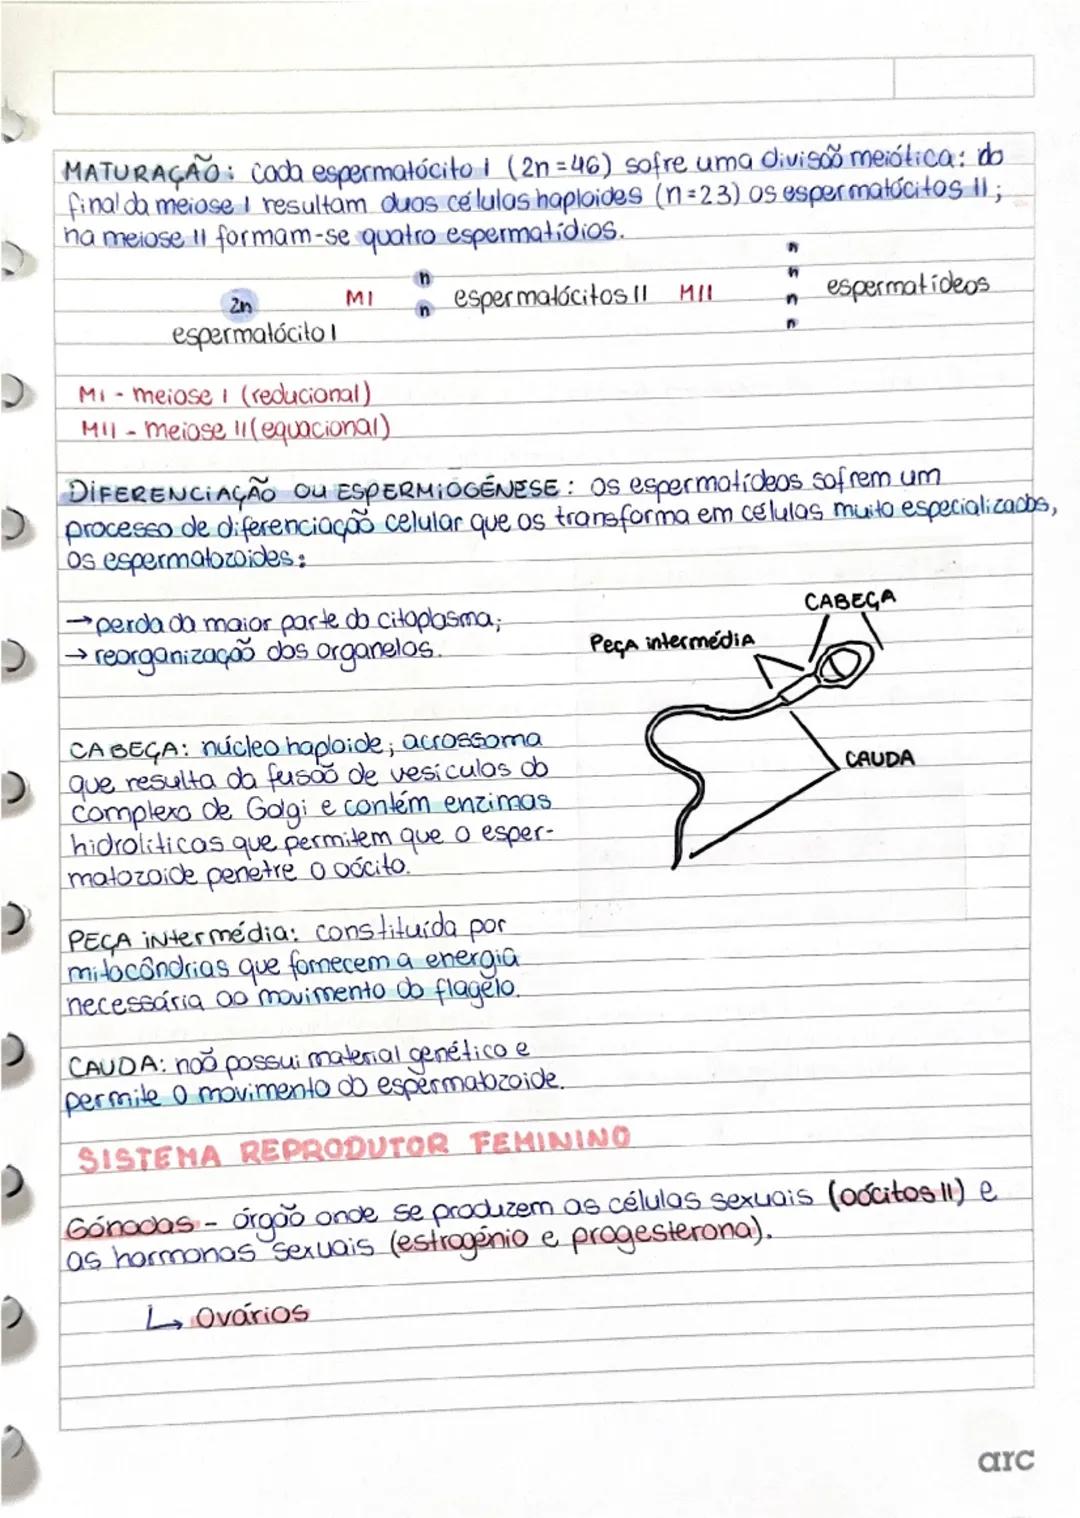 MATURAÇÃO: cada espermatócito I (2n=46) sofre uma divisão meiótica: do
final da meiose I resultam duas células haploides (n=23) os espermatócitos II;
na meiose II formam-se quatro espermatídios.
n
n
n
n
n
n
2n
MI
espermatócitos II
MII
espermatídeos
espermatócito I
MI - meiose I (reducional)
MII - meiose II (equacional)
DIFERENCIAÇÃO OU ESPERMIOGÉNESE: os espermatídeos sofrem um
processo de diferenciação celular que os transforma em células muito especializados,
os espermatozoides:
→ perda da maior parte do citoplasma;
→ reorganização dos organelos.
CABEÇA
Peça intermédia
CAUDA
CABEÇA: núcleo haploide; acrossoma
que resulta da fusão de vesículas do
complexo de Golgi e contém enzimas
hidrolíticas que permitem que o esper-
matozoide penetre o oócito.
PEÇA intermédia: constituída por
mitocôndrias que fornecem a energia
necessária ao movimento do flagelo.
CAUDA: não possui material genético e
permite o movimento do espermatozoide.
SISTEMA REPRODUTOR FEMININO
Gónadas - órgão onde se produzem as células sexuais (oócitos II) e
as hormonas sexuais (estrogénio e progesterona).
↳ Ovários
arc